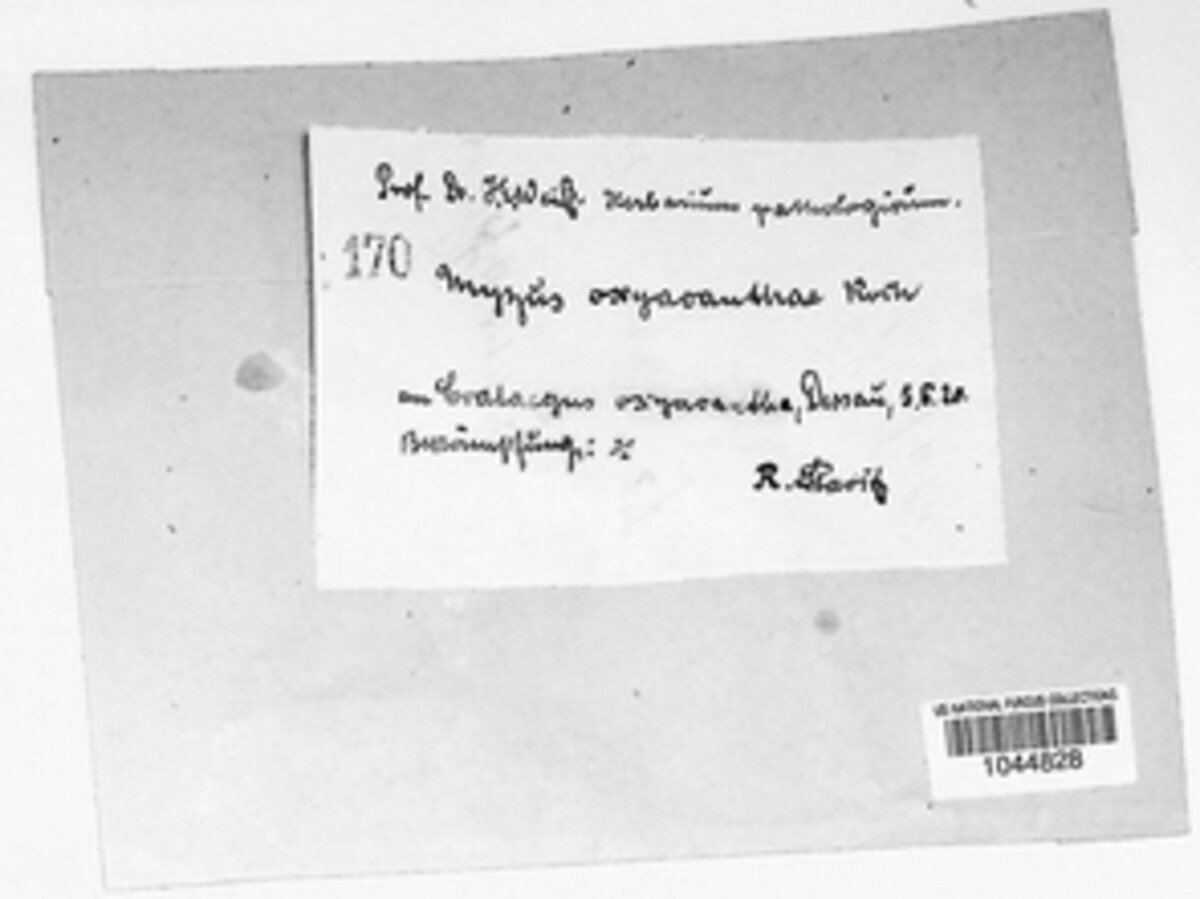 Prof. Dr. Herbarium pathologicum.
170
Myzus oxyacanthae Koch
an Crataegus oxyacantha, Dessau, 5.6.20
Bekämpfung: ×
R. Staritz
US NATIONAL FUNGUS COLLECTIONS
1044828